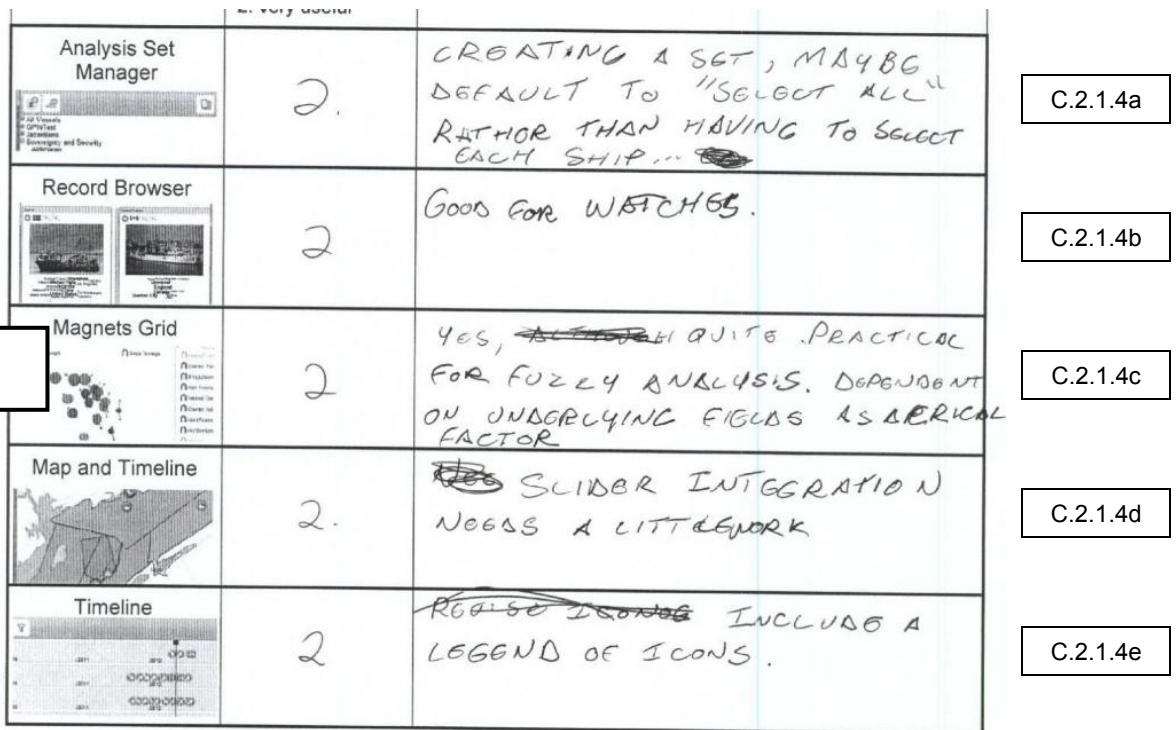 2. very useful
Analysis Set
Manager
All Vessels
Sovereignty and Security
2.
CREATING A SET, MAYBE
DEFAULT TO "SELECT ALL"
RATHER THAN HAVING TO SELECT
EACH SHIP...
C.2.1.4a
Record Browser
2
GOOD FOR WATCHES.
C.2.1.4b
Magnets Grid
2
YES, QUITE PRACTICAL
FOR FUZZY ANALYSIS. DEPENDENT
ON UNDERLYING FIELDS AS A
FACTOR
C.2.1.4c
Map and Timeline
2.
SLIDER INTEGRATION
NEEDS A LITTLE WORK
C.2.1.4d
Timeline
2
INCLUDE A
LEGEND OF ICONS.
C.2.1.4e